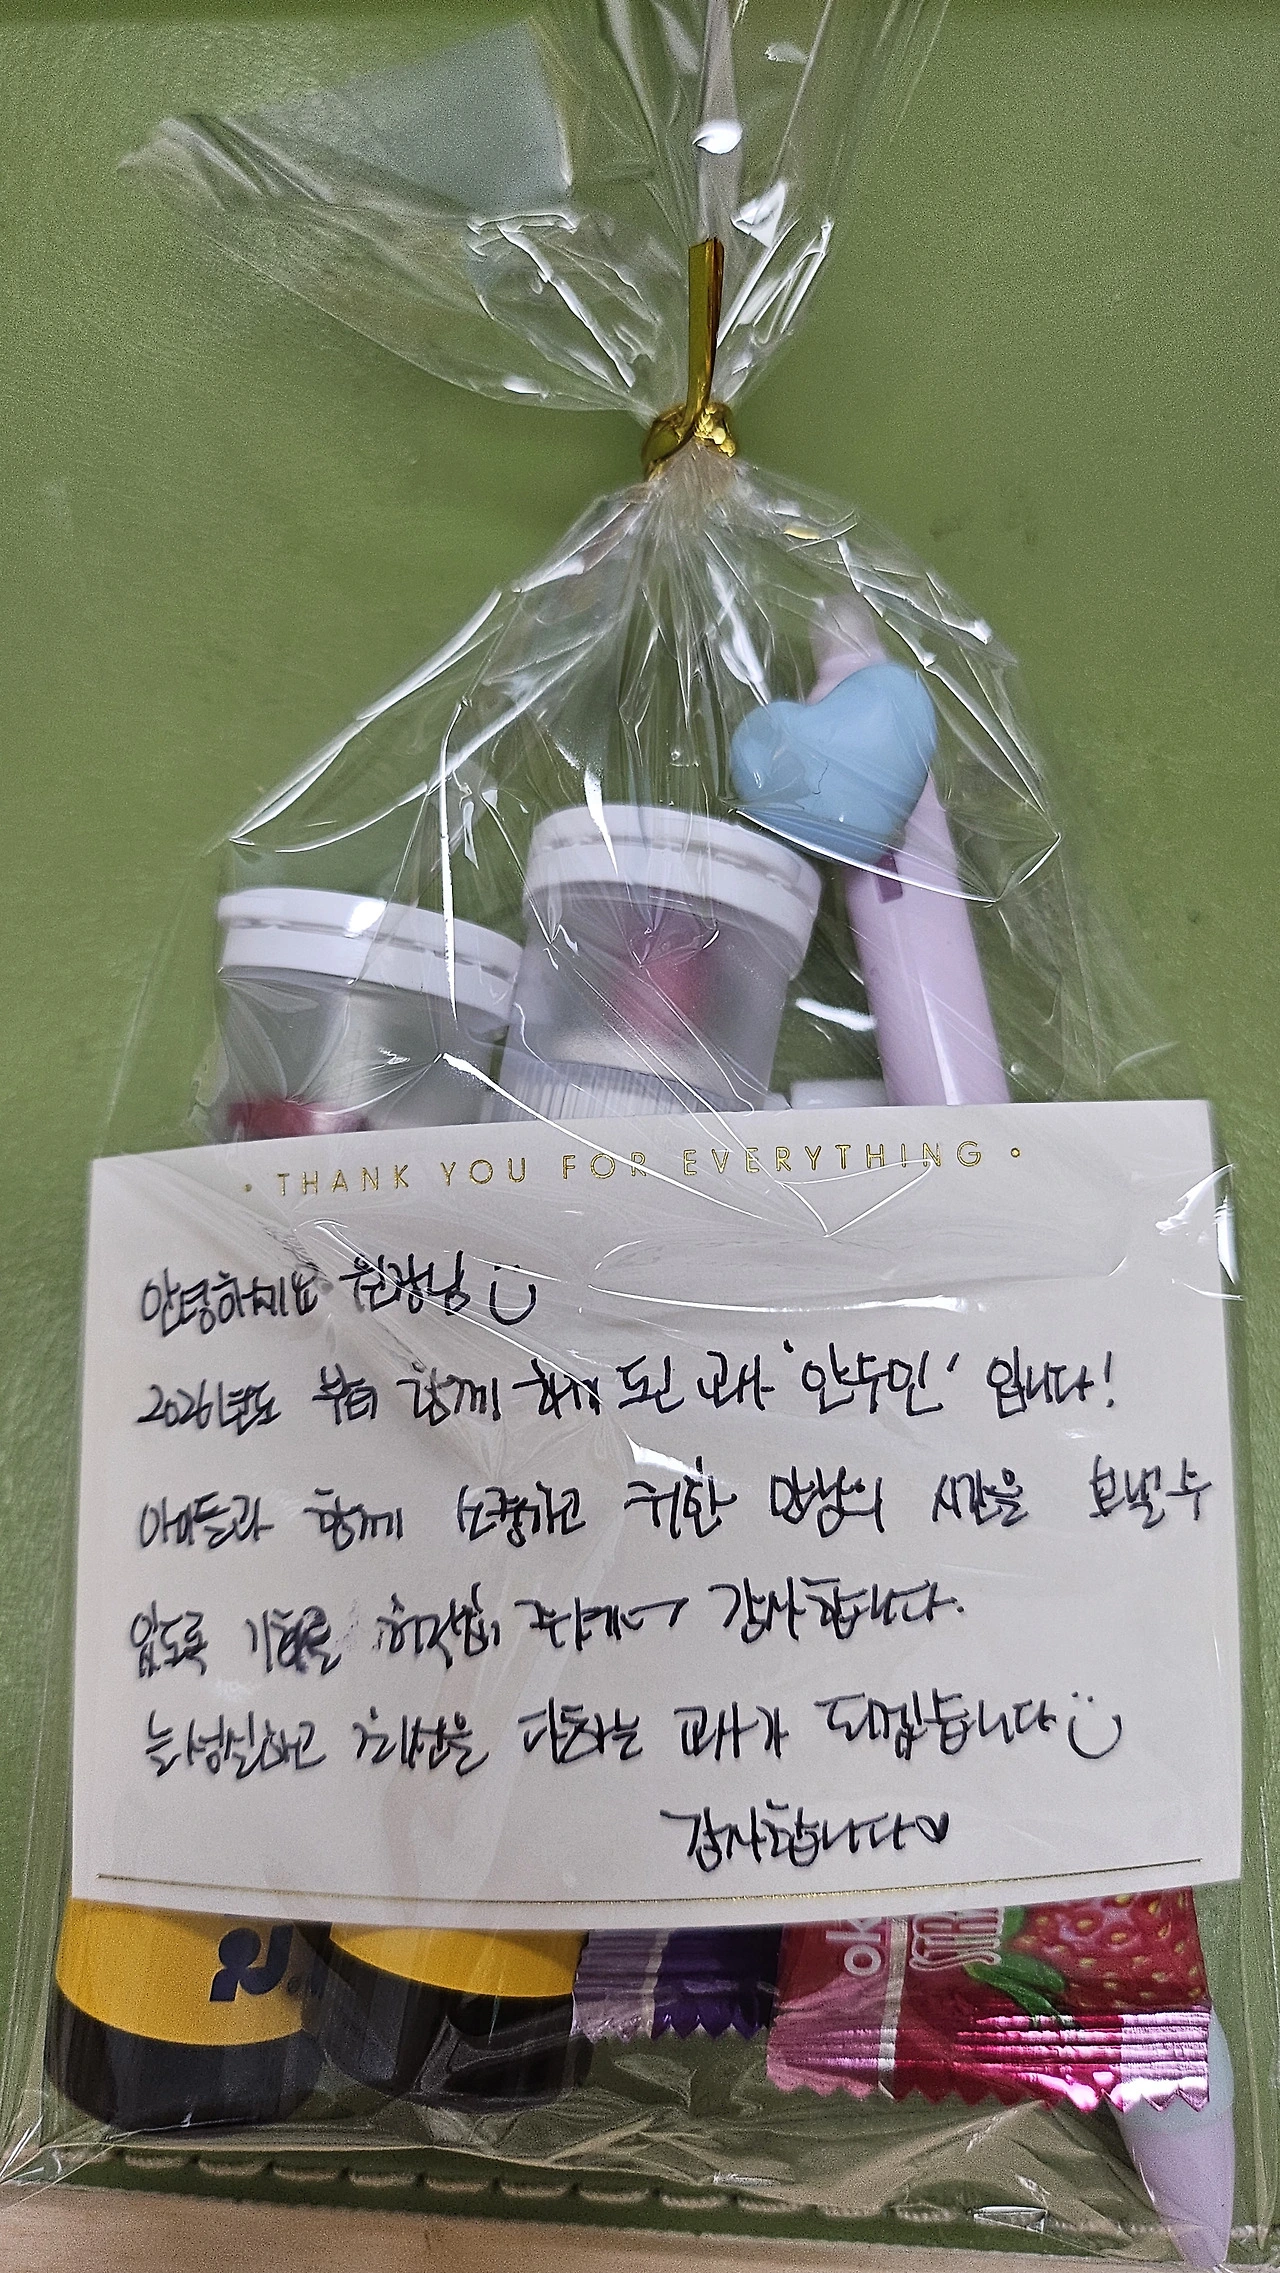 • THANK YOU FOR EVERYTHING •
안녕하세요 원장님
2026년도 부터 함께 하게 된 교사 '안수민' 입니다!
아이들과 함께 소중하고 귀한 만남의 시간을 보낼 수
있도록 기회를 허락해 주셔서 감사합니다.
늘 성실하고 최선을 다하는 교사가 되겠습니다
감사합니다♥
ok